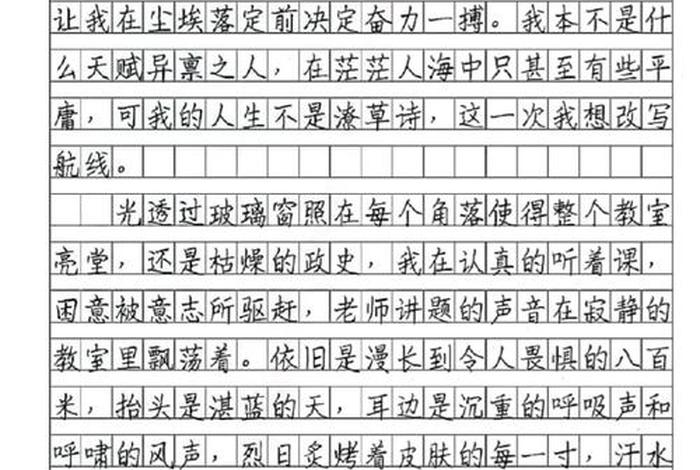 让我在尘埃落定前决定奋力一搏。我本不是什
么天赋异禀之人，在茫茫人海中只甚至有些平
庸，可我的人生不是潦草诗，这一次我想改写
航线。
光透过玻璃窗照在每个角落使得整个教室
亮堂，还是枯燥的政史，我在认真的听着课，
困意被意志所驱赶，老师讲题的声音在寂静的
教室里飘荡着。依旧是漫长到令人畏惧的八百
米，抬头是湛蓝的天，耳边是沉重的呼吸声和
呼啸的风声，烈日炙烤着皮肤的每一寸，汗水